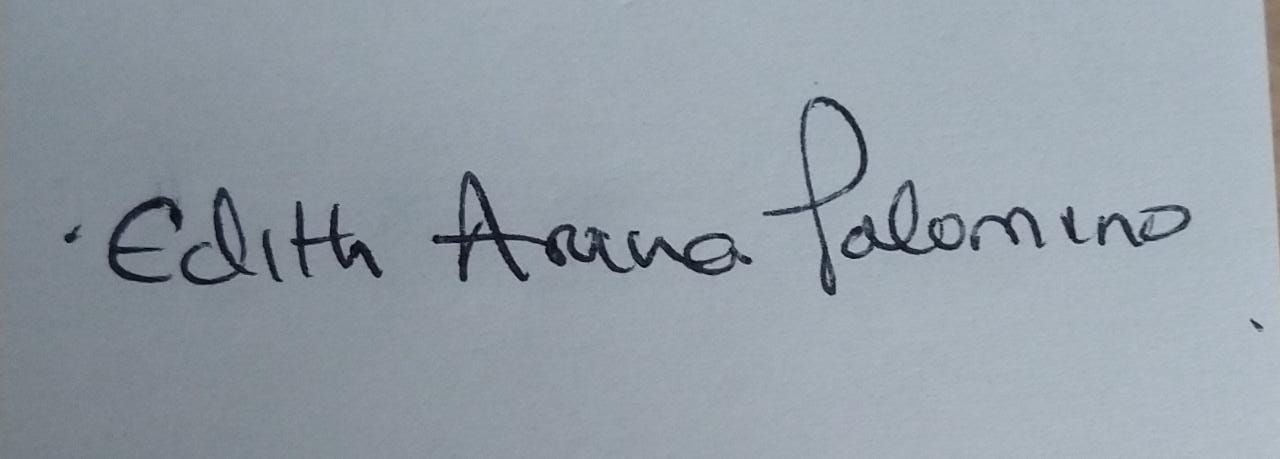 Edith Arana Palomino